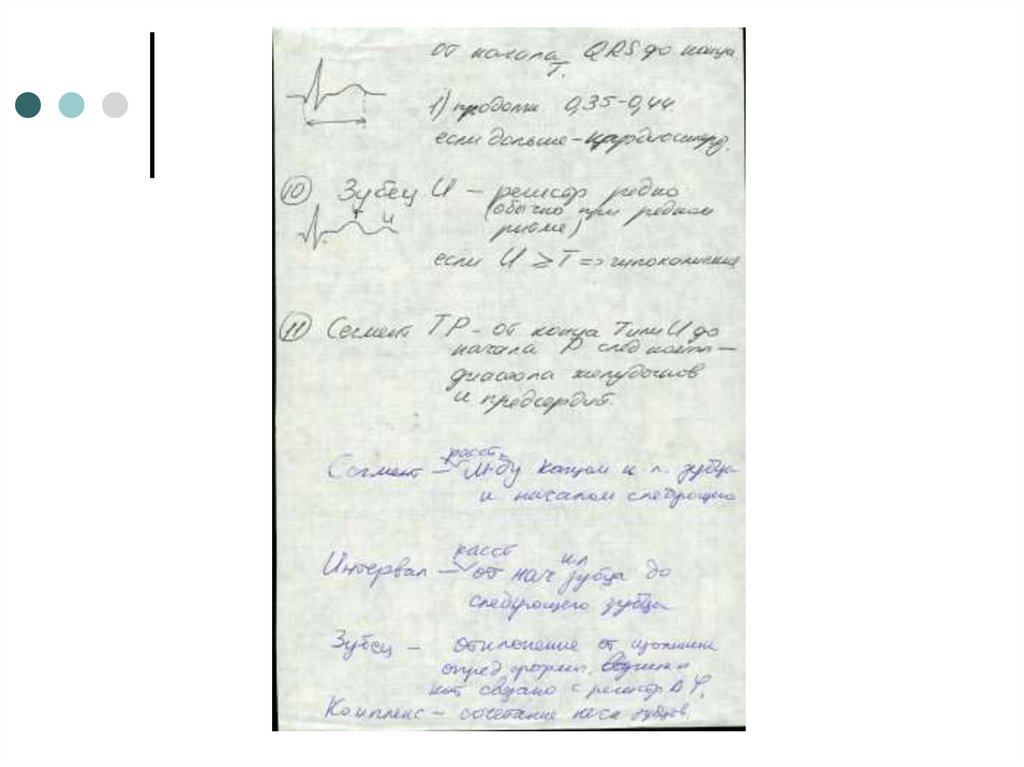 от начала QRS до конца
T.
1) продолж 0,35-0,44
если дольше - кардиосклер.
10 Зубец U - регистр редко
(обычно при редком
ритме)
T U
если U ≥ T => гипокалиемия
11 Сегмент TP - от конца T или U до
начала P след компл -
диастола желудочков
и предсердий.
расст
Сегмент - м-ду концом к л. зубца
и началом следующего
расст к л
Интервал - от нач зубца до
следующего зубца
Зубец - отклонение от изолинии
опред формы,
кот связано с регистр Δφ.
Комплекс - сочетание неск зубцов.